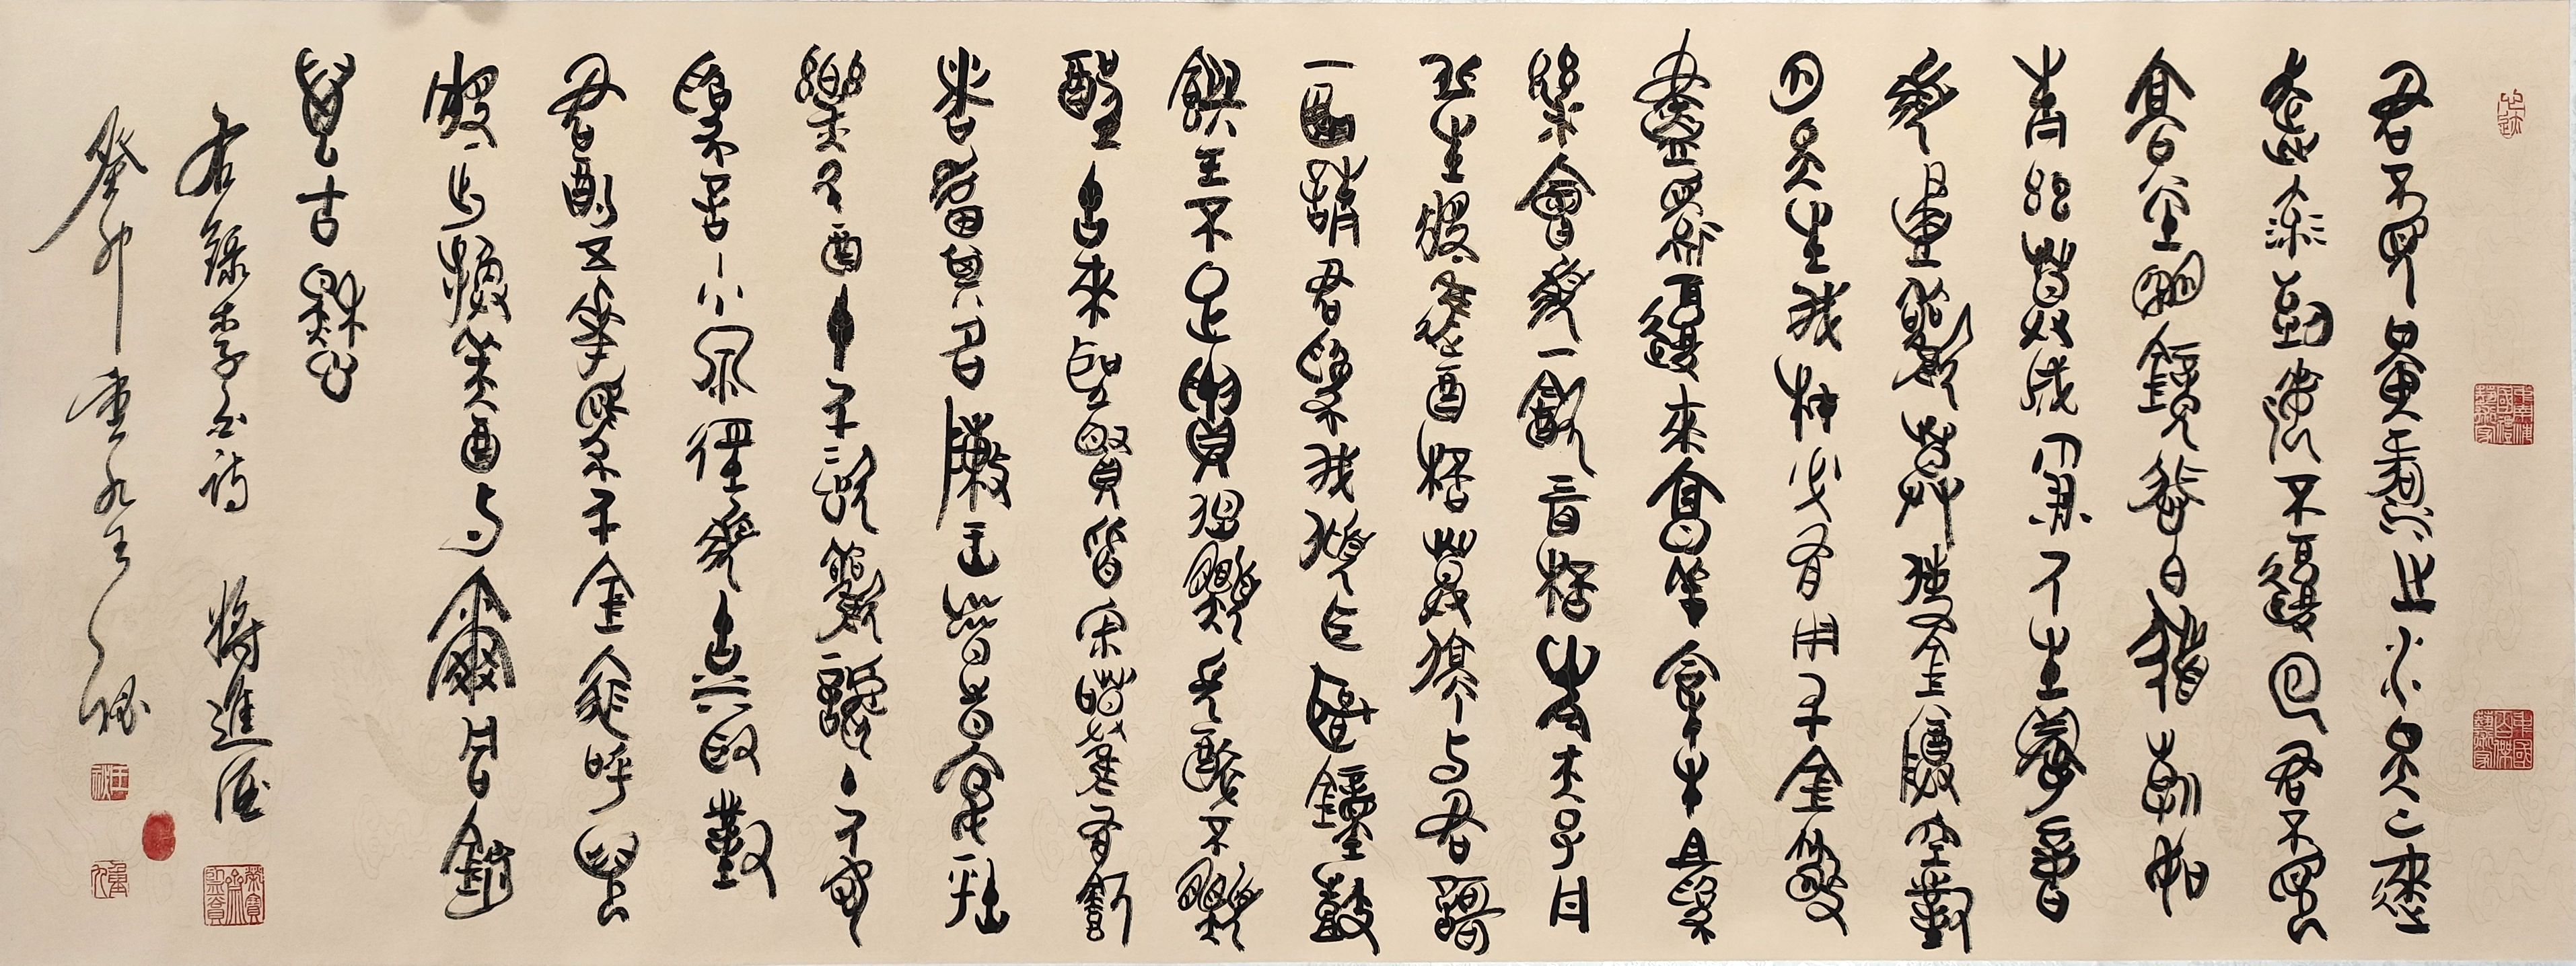 君不見黃河之水天上來
奔流到海不復回君不見
高堂明鏡悲白髮朝如
青絲暮成雪人生得意
須盡歡莫使金樽空對
月天生我材必有用千金散
盡還復來烹羊宰牛且爲
樂會須一飲三百杯岑夫子丹
丘生將進酒杯莫停與君歌
一曲請君爲我傾耳聽鐘鼓
饌玉不足貴但願長醉不願
醒古來聖賢皆寂寞惟有飲
者留其名陳王昔時宴平
樂斗酒十千恣歡謔主人何
爲言少錢徑須沽取對
君酌五花馬千金裘呼兒
將出換美酒與爾同銷
萬古愁
右錄李白詩 將進酒
癸卯重九王